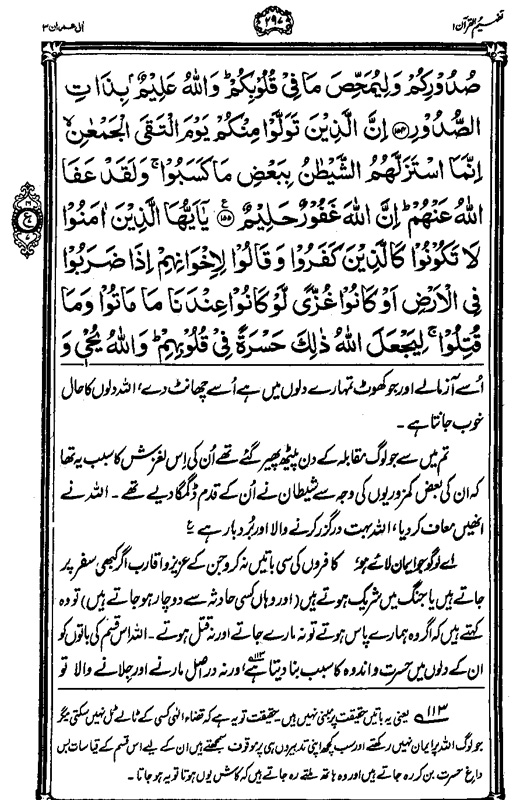 تفہیم القرآن ۱
۲۹۷
اٰل عمران ۳
صُدُوْرِكُمْ وَلِيُمَحِّصَ مَا فِيْ قُلُوْبِكُمْ ؕ وَاللّٰهُ عَلِيْمٌۢ بِذَاتِ
الصُّدُوْرِ ﴿۱۵۴﴾ اِنَّ الَّذِيْنَ تَوَلَّوْا مِنْكُمْ يَوْمَ الْتَقَى الْجَمْعٰنِ ۙ
اِنَّمَا اسْتَزَلَّهُمُ الشَّيْطٰنُ بِبَعْضِ مَا كَسَبُوْا ۚ وَلَقَدْ عَفَا
اللّٰهُ عَنْهُمْ ؕ اِنَّ اللّٰهَ غَفُوْرٌ حَلِيْمٌ ﴿۱۵۵﴾ يٰۤاَيُّهَا الَّذِيْنَ اٰمَنُوْا
لَا تَكُوْنُوْا كَالَّذِيْنَ كَفَرُوْا وَقَالُوْا لِاِخْوَانِهِمْ اِذَا ضَرَبُوْا
فِي الْاَرْضِ اَوْ كَانُوْا غُزًّى لَّوْ كَانُوْا عِنْدَنَا مَا مَاتُوْا وَمَا
قُتِلُوْا ۚ لِيَجْعَلَ اللّٰهُ ذٰلِكَ حَسْرَةً فِيْ قُلُوْبِهِمْ ؕ وَاللّٰهُ يُحْيٖ وَ
اُسے آزمالے اور جو کھوٹ تمہارے دلوں میں ہے اُسے چھانٹ دے، اللہ دلوں کا حال
خوب جانتا ہے۔
تم میں سے جو لوگ مقابلہ کے دن پیٹھ پھیر گئے تھے اُن کی اِس لغزش کا سبب یہ تھا
کہ ان کی بعض کمزوریوں کی وجہ سے شیطان نے اُن کے قدم ڈگمگا دیے تھے۔ اللہ نے
انھیں معاف کر دیا، اللہ بہت درگزر کرنے والا اور بُردبار ہے ؏
اے لوگو جو ایمان لائے ہو، کافروں کی سی باتیں نہ کرو جن کے عزیز و اقارب اگر کبھی سفر پر
جاتے ہیں یا جنگ میں شریک ہوتے ہیں (اور وہاں کسی حادثہ سے دوچار ہو جاتے ہیں) تو وہ
کہتے ہیں کہ اگر وہ ہمارے پاس ہوتے تو نہ مارے جاتے اور نہ قتل ہوتے۔ اللہ اس قسم کی باتوں کو
ان کے دلوں میں حسرت و اندوہ کا سبب بنا دیتا ہے،۱۱۳ ورنہ دراصل مارنے اور جِلانے والا تو
۱۱۳ یعنی یہ باتیں حقیقت پر مبنی نہیں ہیں۔ حقیقت تو یہ ہے کہ قضاء الٰہی کسی کے ٹالے ٹل نہیں سکتی مگر
جو لوگ اللہ پر ایمان نہیں رکھتے اور سب کچھ اپنی تدبیروں ہی پر موقوف سمجھتے ہیں ان کے لیے اس قسم کے قیاسات بس
داغِ حسرت بن کر رہ جاتے ہیں اور وہ ہاتھ ملتے رہ جاتے ہیں کہ کاش یوں ہوتا تو یہ ہو جاتا۔